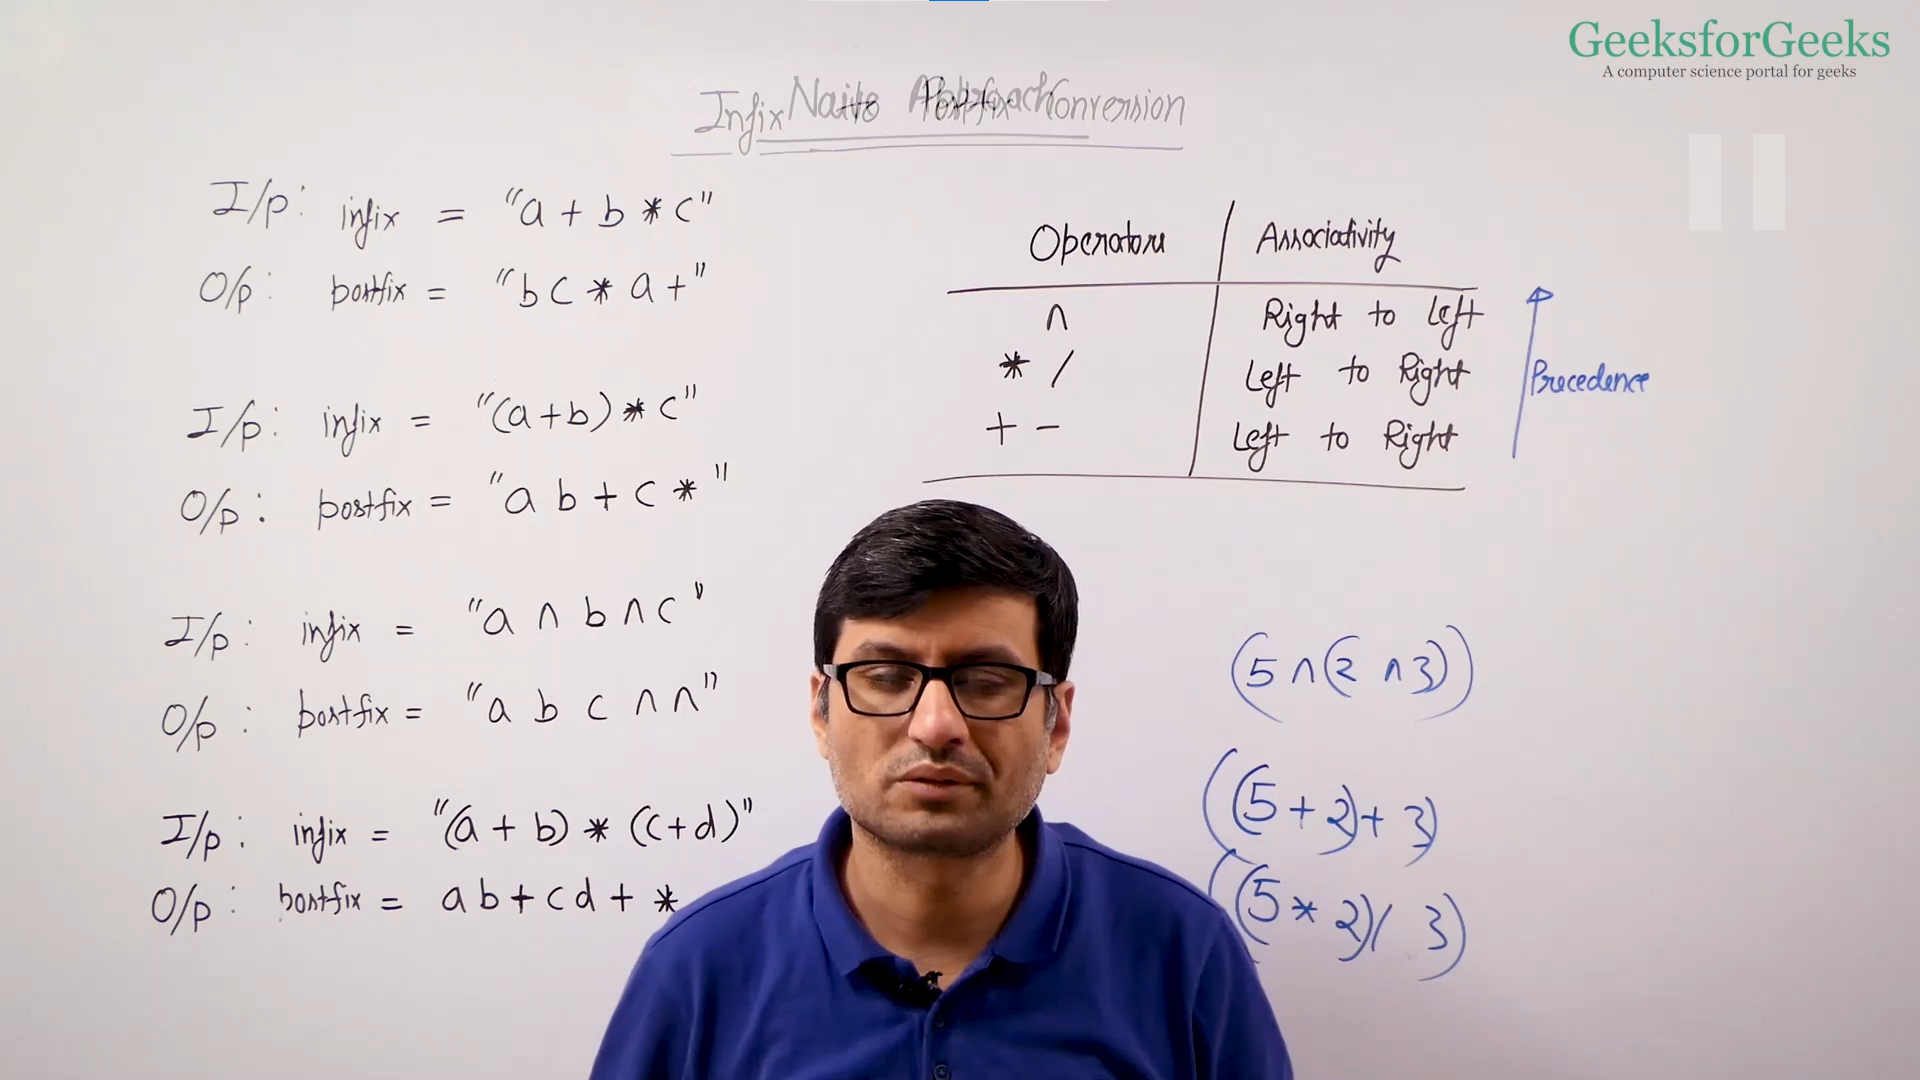 GeeksforGeeks
A computer science portal for geeks
Infix to Postfix Conversion
Naive Approach
I/p: infix = "a + b * c"
O/p: postfix = "b c * a +"
I/p: infix = "(a+b) * c"
O/p: postfix = "a b + c *"
I/p: infix = "a ^ b ^ c"
O/p: postfix = "a b c ^ ^"
I/p: infix = "(a + b) * (c+d)"
O/p: postfix = a b + c d + *
Operators Associativity
^ Right to Left
* / Left to Right
+ - Left to Right
Precedence
(5 ^ (2 ^ 3))
((5 + 2) + 3)
((5 * 2) / 3)